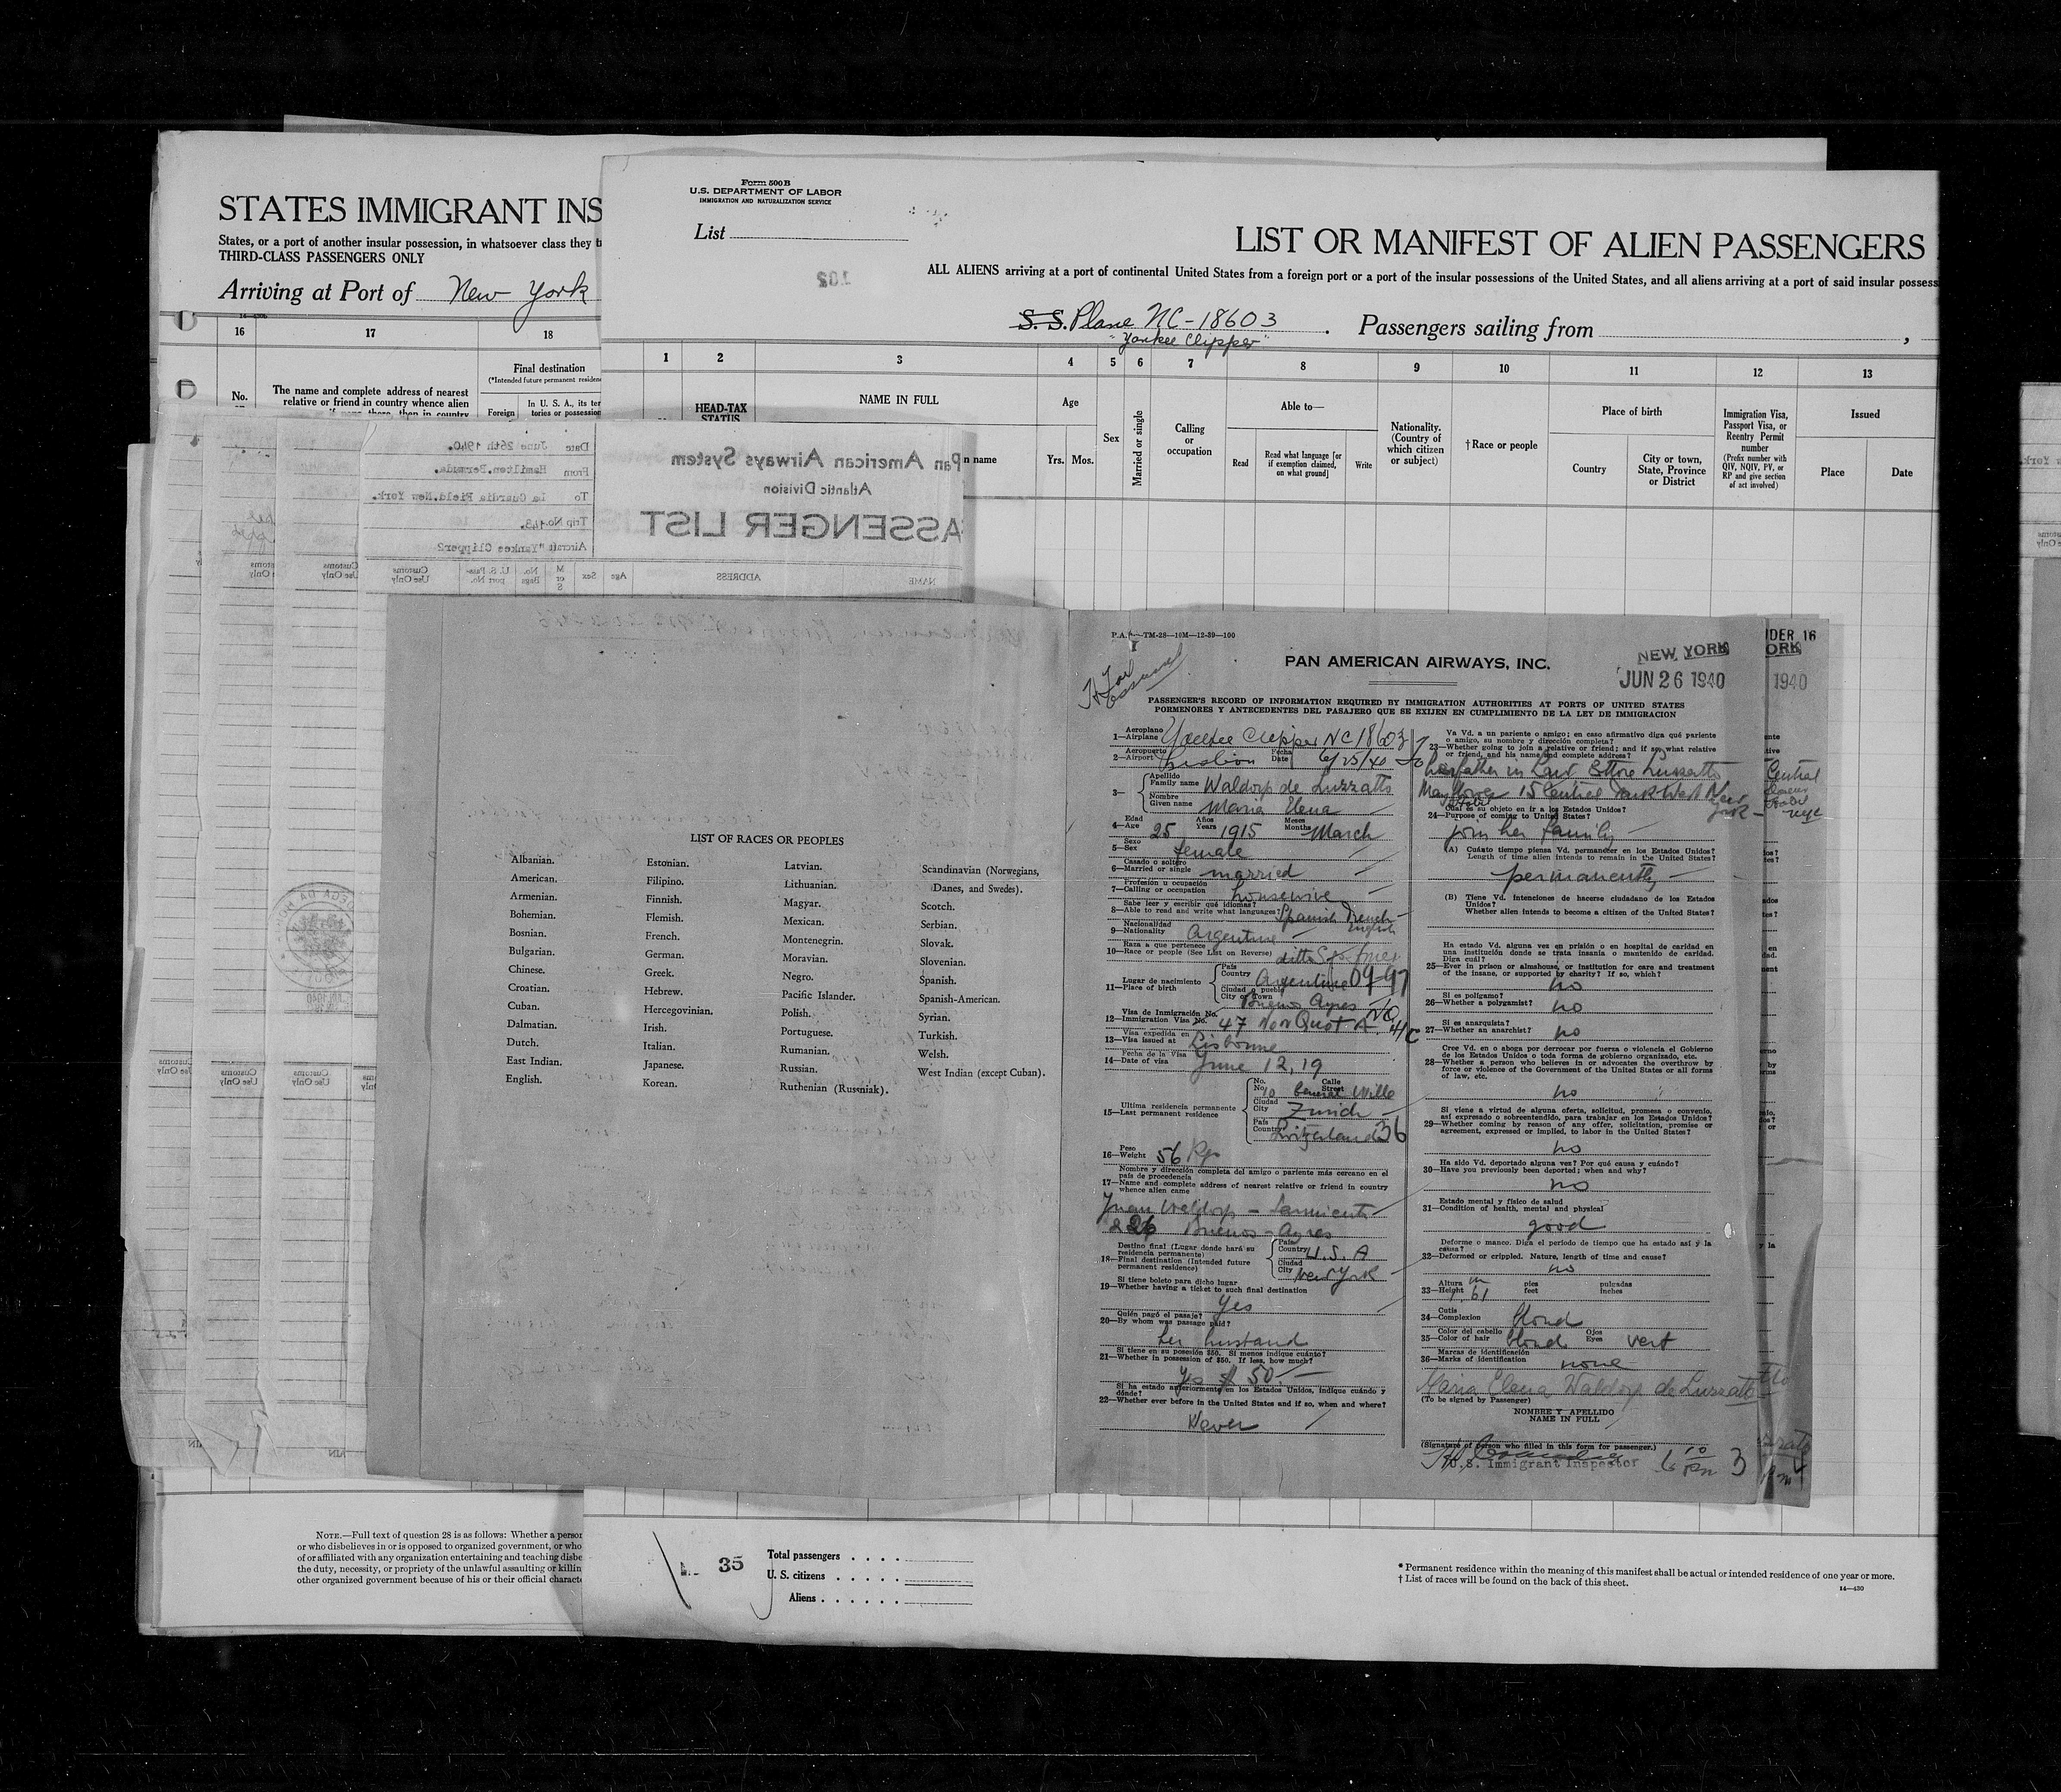 STATES IMMIGRANT INS
States, or a port of another insular possession, in whatsoever class they
THIRD-CLASS PASSENGERS ONLY
Arriving at Port of New York
16 17 18
No.
The name and complete address of nearest
relative or friend in country whence alien
Final destination
(*Intended future permanent residence
Foreign
In U. S. A., its ter
tories or possession
Form 500 B
U.S. DEPARTMENT OF LABOR
IMMIGRATION AND NATURALIZATION SERVICE
List
102
LIST OR MANIFEST OF ALIEN PASSENGERS
ALL ALIENS arriving at a port of continental United States from a foreign port or a port of the insular possessions of the United States, and all aliens arriving at a port of said insular possess
S. S. Plane NC-18603. Passengers sailing from
"Yankee Clipper"
1 2 3 4 5 6 7 8 9 10 11 12 13
HEAD-TAX
STATUS
NAME IN FULL
n name
Age
Yrs. Mos.
Sex
Married or single
Calling
or
occupation
Able to—
Read
Read what language [or
if exemption claimed,
on what ground]
Write
Nationality.
(Country of
which citizen
or subject)
† Race or people
Place of birth
Country
City or town,
State, Province
or District
Immigration Visa,
Passport Visa, or
Reentry Permit
number
(Prefix number with
QIV, NQIV, PV, or
RP and give section
of act involved)
Issued
Place
Date
Pan American Airways System
Atlantic Division
PASSENGER LIST
Date June 26th 1940.
From Hamilton.Bermuda.
To La Guardia Field.New York.
Trip No. 143.
Aircraft "Yankee Clipper2
NAME
ADDRESS
Age
Sex
M
or
S
No.
Bags
U. S. Pass-
port No.
Customs
Use Only
LIST OF RACES OR PEOPLES
Albanian.
American.
Armenian.
Bohemian.
Bosnian.
Bulgarian.
Chinese.
Croatian.
Cuban.
Dalmatian.
Dutch.
East Indian.
English.
Estonian.
Filipino.
Finnish.
Flemish.
French.
German.
Greek.
Hebrew.
Hercegovinian.
Irish.
Italian.
Japanese.
Korean.
Latvian.
Lithuanian.
Magyar.
Mexican.
Montenegrin.
Moravian.
Negro.
Pacific Islander.
Polish.
Portuguese.
Rumanian.
Russian.
Ruthenian (Russniak).
Scandinavian (Norwegians,
Danes, and Swedes).
Scotch.
Serbian.
Slovak.
Slovenian.
Spanish.
Spanish-American.
Syrian.
Turkish.
Welsh.
West Indian (except Cuban).
TM-28—10M—12-39—100
PAN AMERICAN AIRWAYS, INC.
NEW YORK
JUN 26 1940
PASSENGER'S RECORD OF INFORMATION REQUIRED BY IMMIGRATION AUTHORITIES AT PORTS OF UNITED STATES
PORMENORES Y ANTECEDENTES DEL PASAJERO QUE SE EXIJEN EN CUMPLIMIENTO DE LA LEY DE IMMIGRACION
Aeroplano
1—Airplane Clipper NC 18603
Aeropuerto Fecha
2—Airport Lisbon Date 6/25/40
3—
Apellido
Family name Waldorp de Luzzatto
Nombre
Given name Maria Elena
Edad Años Meses
4—Age 25 Years 1915 Months March
Sexo
5—Sex female
Casado o soltero
6—Married or single married
Profesión u ocupación
7—Calling or occupation housewive
Sabe leer y escribir qué idiomas?
8—Able to read and write what languages? Spanish French
English
Nacionalidad
9—Nationality Argentine
Raza a que pertenece
10—Race or people (See List on Reverse) ditto
Lugar de nacimiento
11—Place of birth
País
Country Argentine
Ciudad o pueblo
City or Town Buenos Ayres
Visa de Inmigración No.
12—Immigration Visa No. 47 Non Quot A
Visa expedida en
13—Visa issued at Lisbonne
Fecha de la Visa
14—Date of visa June 12, 19
Ultima residencia permanente
15—Last permanent residence
No. Calle
No. 10 Street General Wille
Ciudad
City Zurich
País
Country Switzerland 36
Peso
16—Weight 56 Kgs
Nombre y dirección completa del amigo o pariente más cercano en el
país de procedencia
17—Name and complete address of nearest relative or friend in country
whence alien came
Juan Waldorp - Sarmiento
226 Buenos-Ayres
Destino final (Lugar dónde hará su
residencia permanente)
18—Final destination (Intended future
permanent residence)
País
Country U.S.A
Ciudad
City New York
Si tiene boleto para dicho lugar
19—Whether having a ticket to such final destination
Yes
Quién pagó el pasaje?
20—By whom was passage paid?
her husband
Si tiene en su posesión $50. Si menos indique cuánto?
21—Whether in possession of $50. If less, how much?
Yes $ 50.—
Si ha estado anteriormente en los Estados Unidos, indique cuándo y
dónde?
22—Whether ever before in the United States and if so, when and where?
Never
Va Vd. a un pariente o amigo; en caso afirmativo diga qué pariente
o amigo, su nombre y dirección completa?
23—Whether going to join a relative or friend; and if so, what relative
or friend, and his name and complete address?
her father in law Ettore Luzzatto
Mayflower 15 Central Park West New
Hotel York
Cuál es su objeto en ir a los Estados Unidos?
24—Purpose of coming to United States?
join her family
(A) Cuánto tiempo piensa Vd. permanecer en los Estados Unidos?
Length of time alien intends to remain in the United States?
permanently
(B) Tiene Vd. intenciones de hacerse ciudadano de los Estados
Unidos?
Whether alien intends to become a citizen of the United States?
Ha estado Vd. alguna vez en prisión o en hospital de caridad en
una institución donde se trata insania o mantenido de caridad.
Diga cuál?
25—Ever in prison or almshouse, or institution for care and treatment
of the insane, or supported by charity? If so, which?
no
Si es polígamo?
26—Whether a polygamist? no
Si es anarquista?
27—Whether an anarchist? no
Cree Vd. en o aboga por derrocar por fuerza o violencia el Gobierno
de los Estados Unidos o toda forma de gobierno organizado, etc.
28—Whether a person who believes in or advocates the overthrow by
force or violence of the Government of the United States or all forms
of law, etc.
no
Si viene a virtud de alguna oferta, solicitud, promesa o convenio,
así expresado o sobreentendido, para trabajar en los Estados Unidos?
29—Whether coming by reason of any offer, solicitation, promise or
agreement, expressed or implied, to labor in the United States?
no
Ha sido Vd. deportado alguna vez? Por qué causa y cuándo?
30—Have you previously been deported; when and why?
no
Estado mental y físico de salud
31—Condition of health, mental and physical
good
Deforme o manco. Diga el período de tiempo que ha estado así y la
causa?
32—Deformed or crippled. Nature, length of time and cause?
no
Altura m pies pulgadas
33—Height 1,61 feet inches
Cutis
34—Complexion blond
Color del cabello Ojos
35—Color of hair blond Eyes vert
Marcas de identificación
36—Marks of identification none
Maria Elena Waldorp de Luzzatto
(To be signed by Passenger)
NOMBRE Y APELLIDO
NAME IN FULL
(Signature of person who filled in this form for passenger.)
U.S. Immigrant Inspector
3
UNDER 16
ORK
1940
Central
NOTE.—Full text of question 28 is as follows: Whether a person
or who disbelieves in or is opposed to organized government, or who
of or affiliated with any organization entertaining and teaching disbe
the duty, necessity, or propriety of the unlawful assaulting or killin
other organized government because of his or their official characte
35
Total passengers
U. S. citizens
Aliens
* Permanent residence within the meaning of this manifest shall be actual or intended residence of one year or more.
† List of races will be found on the back of this sheet.
14—430